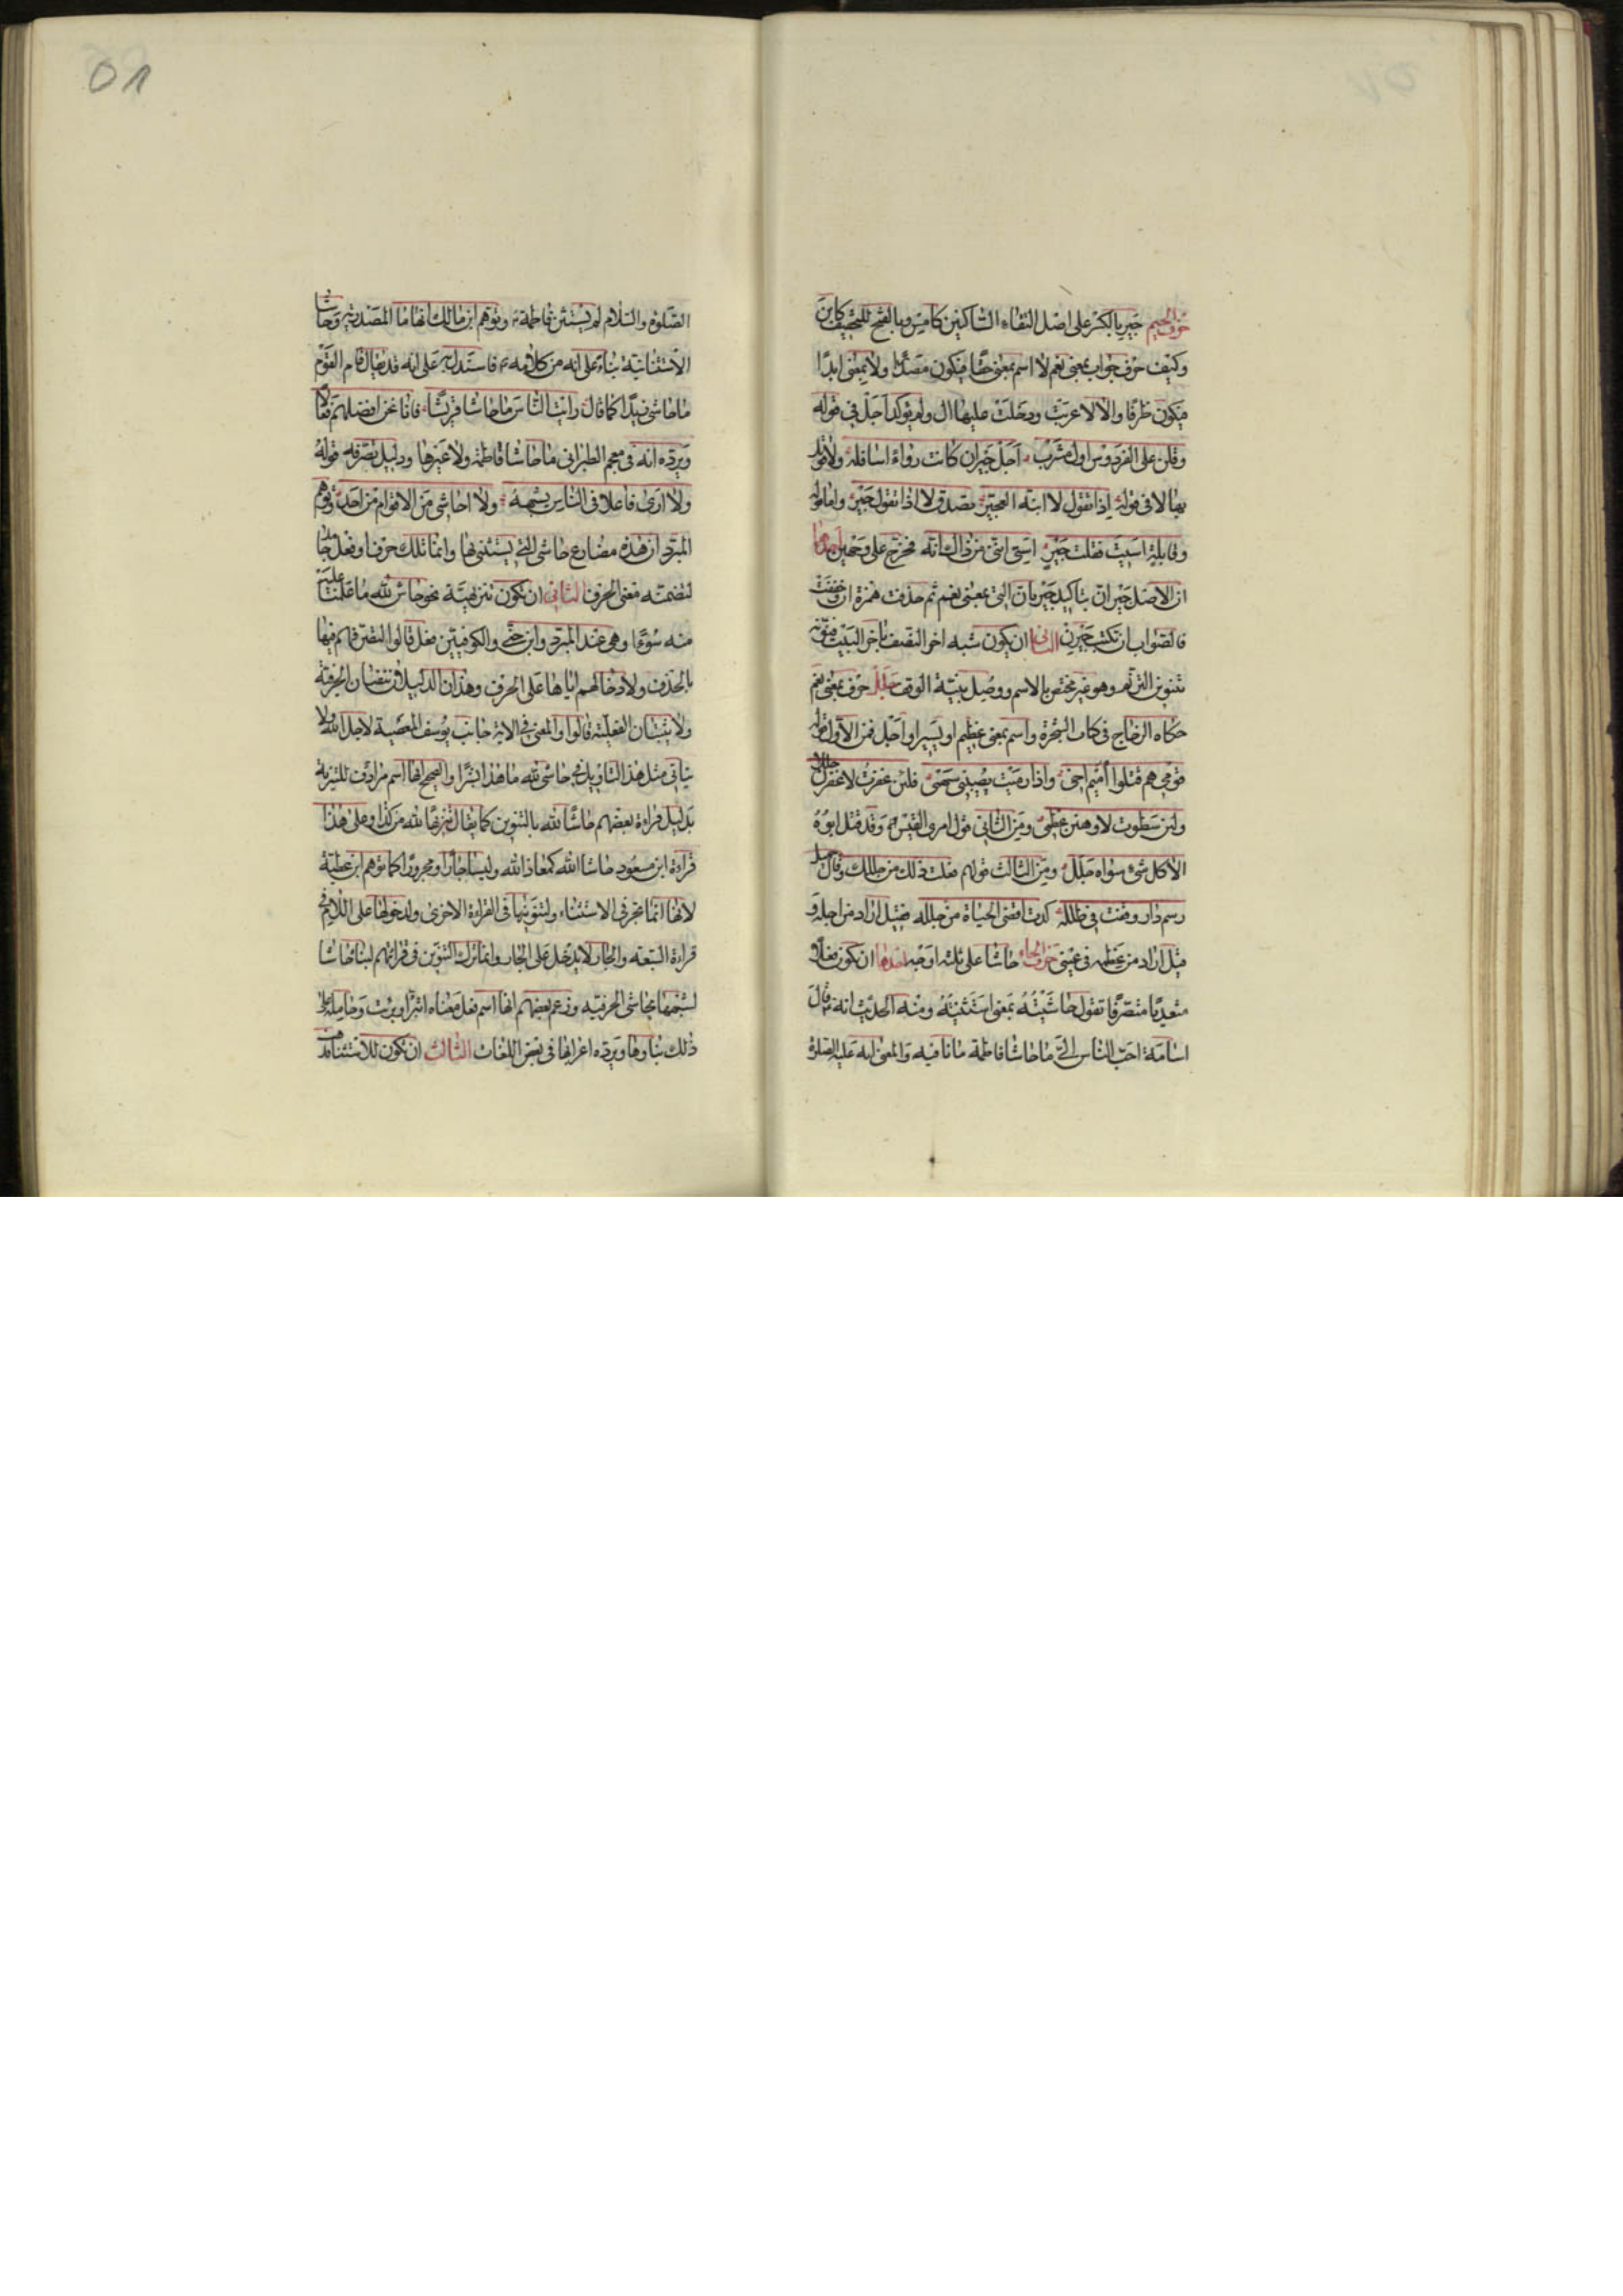 حرف الجيم جير بالكسر على اصل التقاء الساكنين كامس وبالفتح للتخفيف كاين
وكيف حرف جواب بمعنى نعم لا اسم بمعنى حقا فيكون مصدرا ولا بمعنى ابدا
فيكون ظرفا والا لاعربت ودخلت عليها ال ولم يوكد اجل في قوله
وقلن على الفردوس اول مشرب اجل جير ان كانت رواء اسافله ولا قوبل
بها لا في قوله اذا تقول لا ابنه العجير تصدق لا اذا تقول جير واما قوله
وقايلة اسيت فقلت جير اسي انني من ذاك انه فخرج على وجهين احدهما
ان الاصل جير ان بتاكيد جير بان التي بمعنى نعم ثم حذفت همزة ان وخففت
فالصواب ان تكتب جيرن الثاني ان يكون شبه اخر النصف باخر البيت فنونه
تنوين الترنم وهو غير مختص بالاسم ووصل بنية الوقف جلل حرف بمعنى نعم
حكاه الزجاج في كتاب الشجرة واسم بمعنى عظيم او يسير او اجل فمن الاول قوله
قومي هم قتلوا اميم اخي واذا رميت يصيبني سهمي فلئن عفوت لاعفون جللا
ولئن سطوت لاوهنن عظمي ومن الثاني قول امرئ القيس وقد قتل ابوه
الا كل شيء سواه جلل ومن الثالث قولهم فعلت ذلك من جللك وقال جميل
رسم دار وقفت في طلله كدت اقضي الحياة من جلله فقيل اراد من اجله و
قيل اراد من عظمه في عيني حرف الحاء حاشا على ثلثة اوجه احدها ان تكون فعلا
متعديا متصرفا تقول حاشيته بمعنى استثنيته ومنه الحديث انه قال
اسامة احب الناس الي ما حاشا فاطمة ما نافيه والمعنى انه عليه الصلوة
01
الصلوة والسلام لم يستثن فاطمة وتوهم ابن مالك انها ما المصدرية وحاشا
الاستثنائية بناء على انه من كلامه فاستدل به على انه قد يقال قام القوم
ما حاشى زيدا كما قال رايت الناس ما حاشا قريشا فانا نحن افضلهم فعالا
ويرده انه في معجم الطبراني ما حاشا فاطمة ولا غيرها ودليل تصرفه قوله
ولا ارى فاعلا في الناس يشبهه ولا احاشي من الاقوام من احد وتوهم
المبرد ان هذه مضارع حاشى التي يستثنى بها وانما تلك حرف او فعل جامد
لتضمنه معنى الحرف الثاني ان تكون تنزيهية نحو حاش لله ما علمنا عليه
منه سوءا وهي عند المبرد وابن جني والكوفيين فعل قالوا لتصرفهم فيها
بالحذف ولادخالهم اياها على الحرف وهذان الدليلان ينفيان الحرفية
ولا يثبتان الفعلية قالوا والمعنى في الاية جانب يوسف المعصية لاجل الله ولا
يتاتى مثل هذا التاويل في حاشى لله ما هذا بشرا والصحيح انها اسم مرادف للتنزية
بدليل قراءة بعضهم حاشا لله بالتنوين كما يقال تنزيها لله من كذا وعلى هذا
قراءة ابن مسعود حاشا الله كمعاذ الله وليسا جارا ومجرورا كما توهم ابن عطية
لانها انما تجر في الاستثناء ولتنوينها في القراءة الاخرى ولدخولها على اللام في
قراءة السبعة والجار لا يدخل على الجار وانما ترك التنوين في قراءتهم لبناء حاشا
لشبهها بحاشى الحرفيه وزعم بعضهم انها اسم فعل معناه اتبرأ وبرئت وحامله على
ذلك بناوها ويرده اعرابها في بعض اللغات الثالث ان تكون للاستثناء فذهب